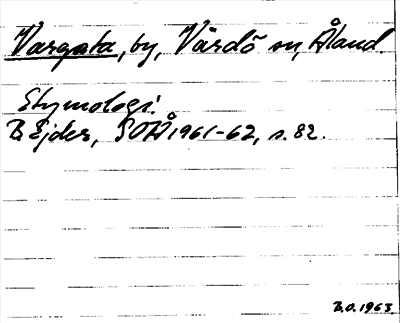 Vargata, by, Vårdö sn, Åland.
Etymologi:
B. Ejder, SOÅ 1961-62, s. 82.
B.O. 1963